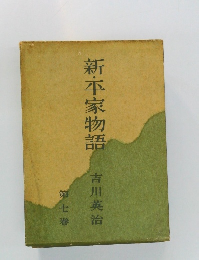 新・平家物語
吉川英治
第七卷